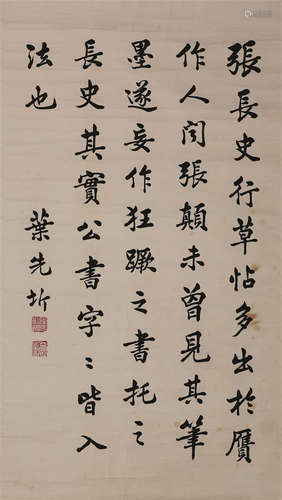 張長史行草帖多出於贗
作人聞張顛未曾見其筆
墨遂妄作狂蹶之書托之
長史其實公書字〻皆入
法也
葉先圻